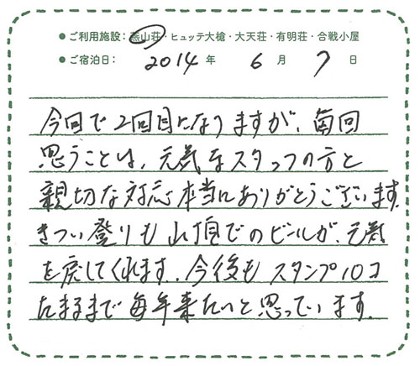 ●ご利用施設：燕山荘・ヒュッテ大槍・大天荘・有明荘・合戦小屋
●ご宿泊日： 2014 年 6 月 7 日
今回で2回目になりますが、毎回
思うことは、元気なスタッフの方と
親切な対応本当にありがとうございます。
きつい登りも山頂でのビールが、元気
を戻してくれます。今後もスタンプ10コ
たまるまで毎年来たいと思っています。